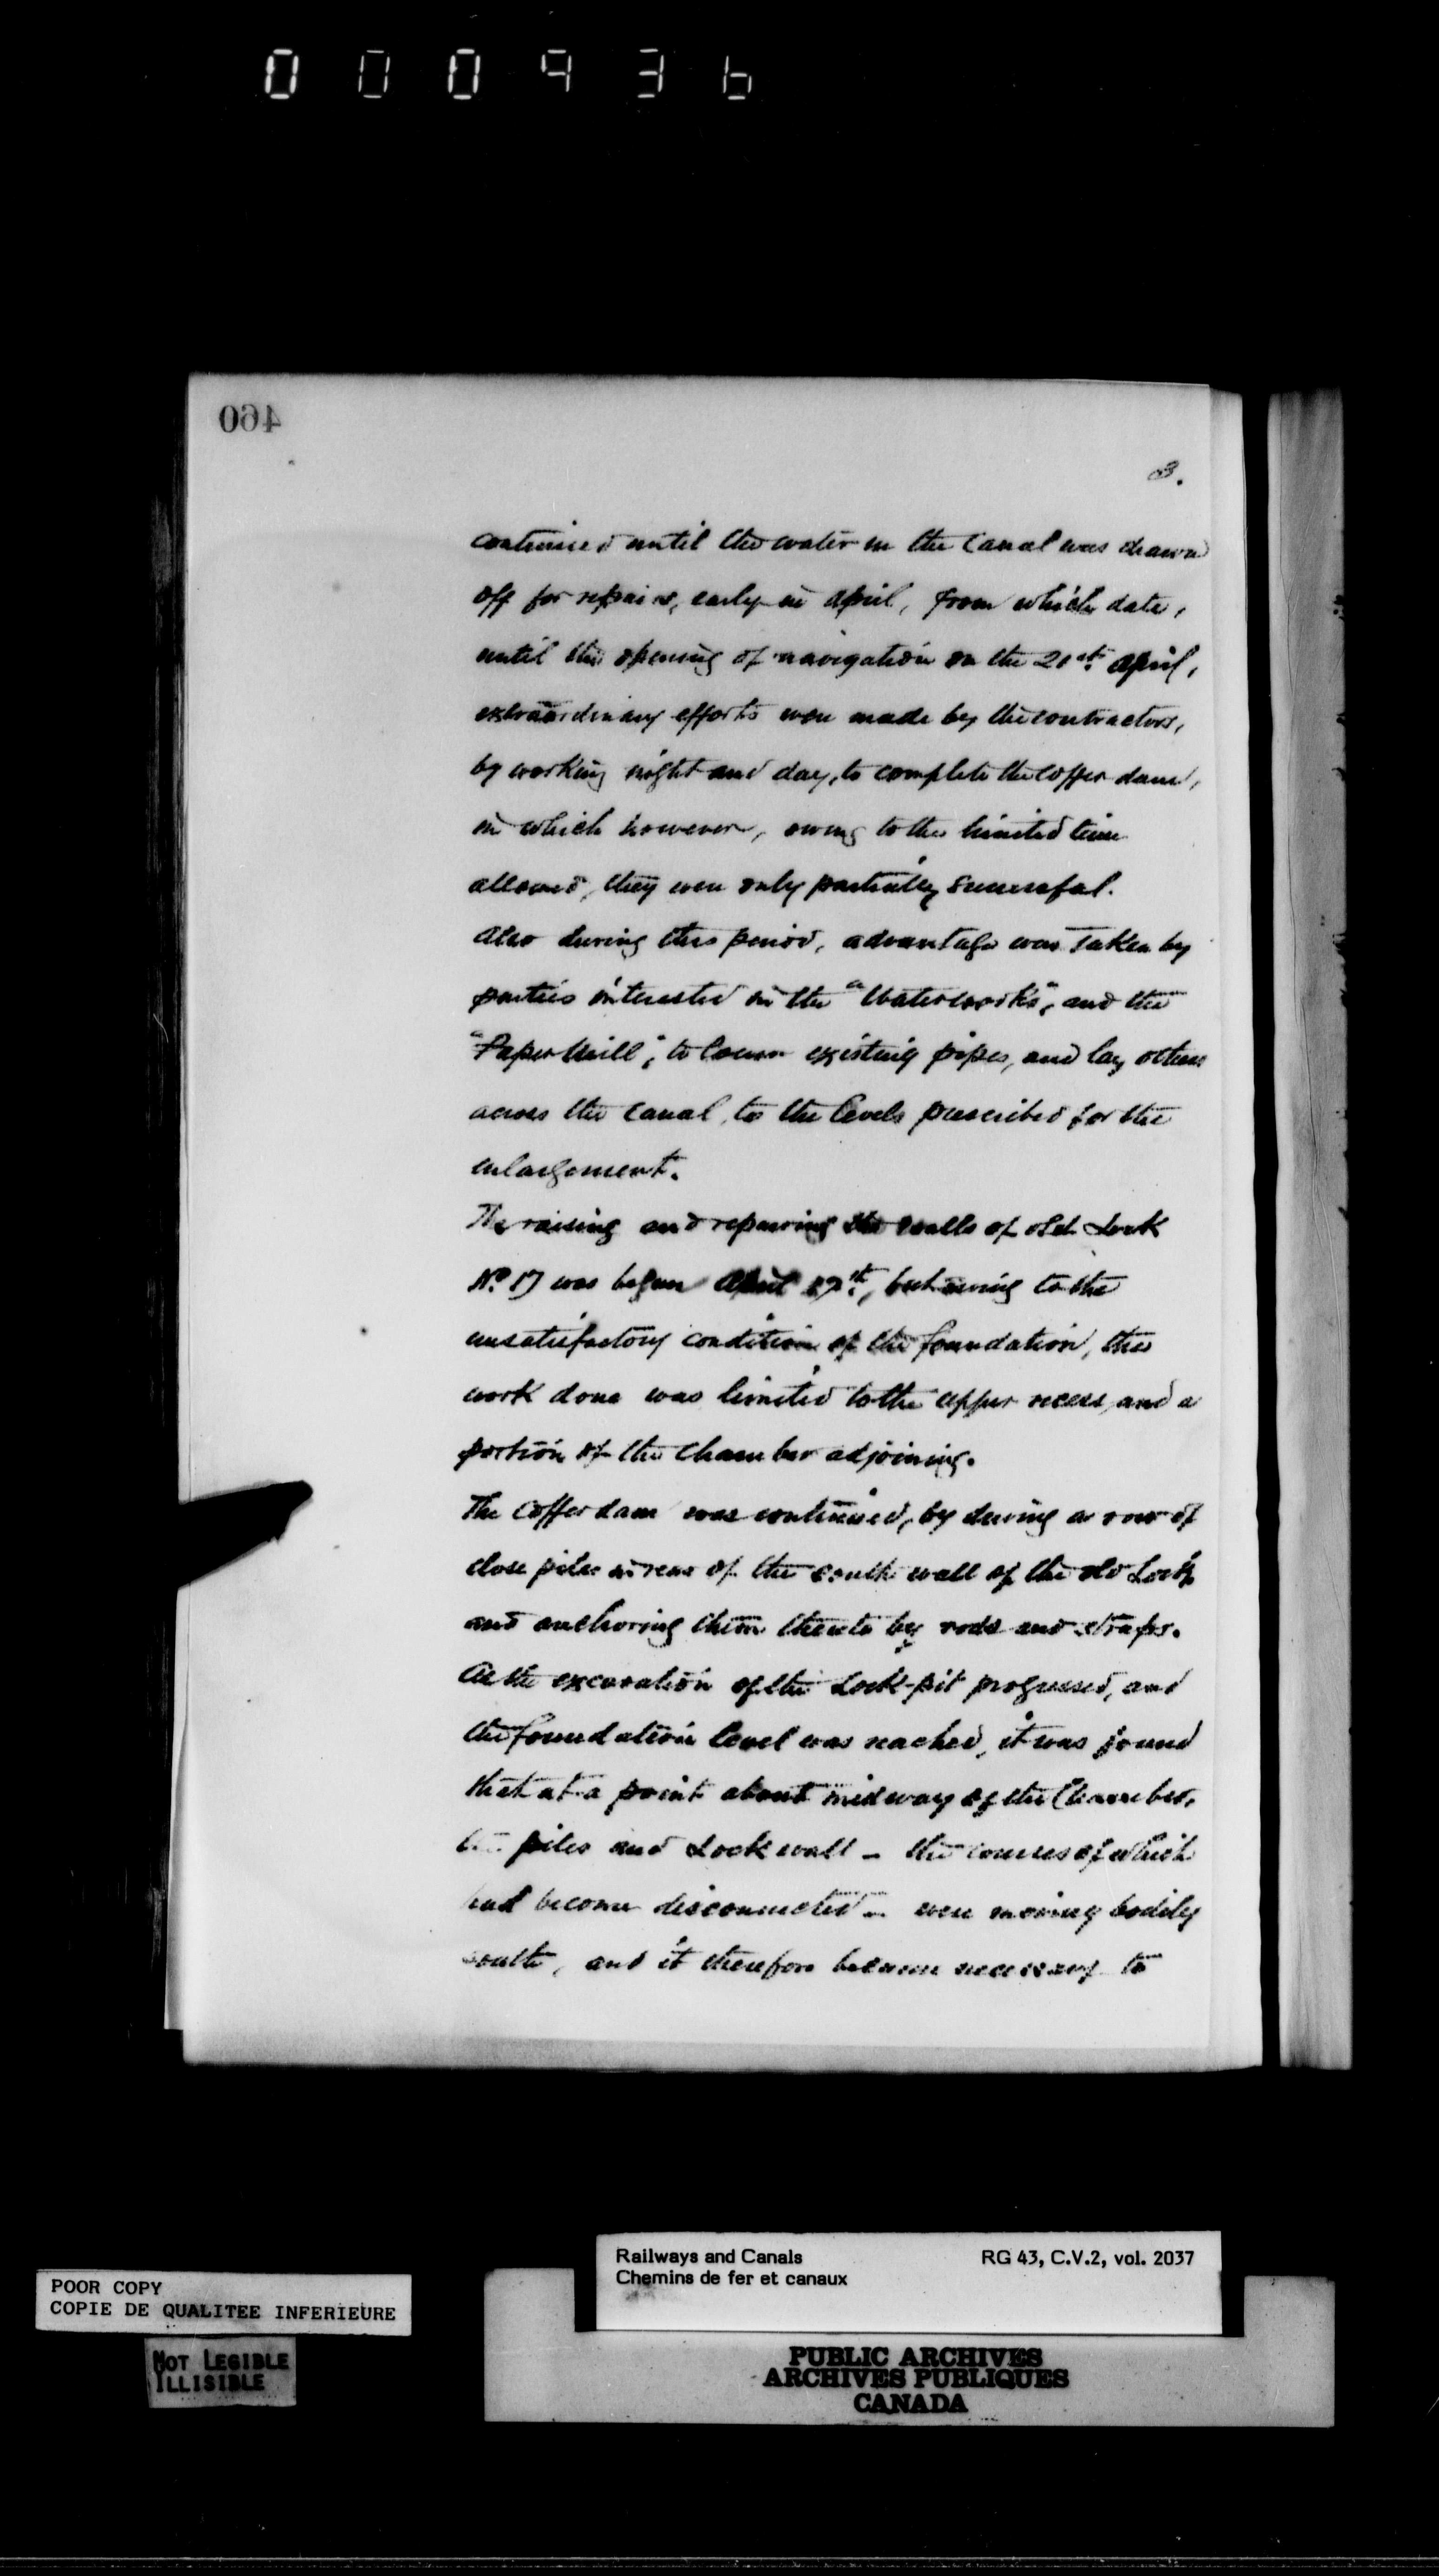 000936
460
3.
continued until the water in the Canal was drawn
off for repairs, early in April, from which date,
until the opening of navigation on the 21st. April,
extraordinary efforts were made by the contractors,
by working night and day, to complete the coffer dam,
in which however, owing to the limited time
allowed, they were only partially successful.
Also during this period, advantage was taken by
parties interested in the "Waterworks", and the
"Paper Mill", to lower existing pipes, and lay others
across the Canal, to the levels prescribed for the
enlargement.
The raising and repairing the walls of old Lock
No. 17 was begun April, but owing to the
unsatisfactory condition of the foundation, the
work done was limited to the upper recess, and a
portion of the chamber adjoining.
The Cofferdam was continued, by driving a row of
close piles in rear of the south wall of the old Lock,
and anchoring them thereto by rods and straps.
As the excavation of the Lock-pit progressed, and
the foundation level was reached, it was found
that at a point about midway of the Chamber,
the piles and Lock wall - the courses of which
had become disconnected - were moving bodily
south, and it therefore became necessary to
Railways and Canals RG 43, C.V.2, vol. 2037
Chemins de fer et canaux
POOR COPY
COPIE DE QUALITEE INFERIEURE
NOT LEGIBLE
ILLISIBLE
PUBLIC ARCHIVES
ARCHIVES PUBLIQUES
CANADA